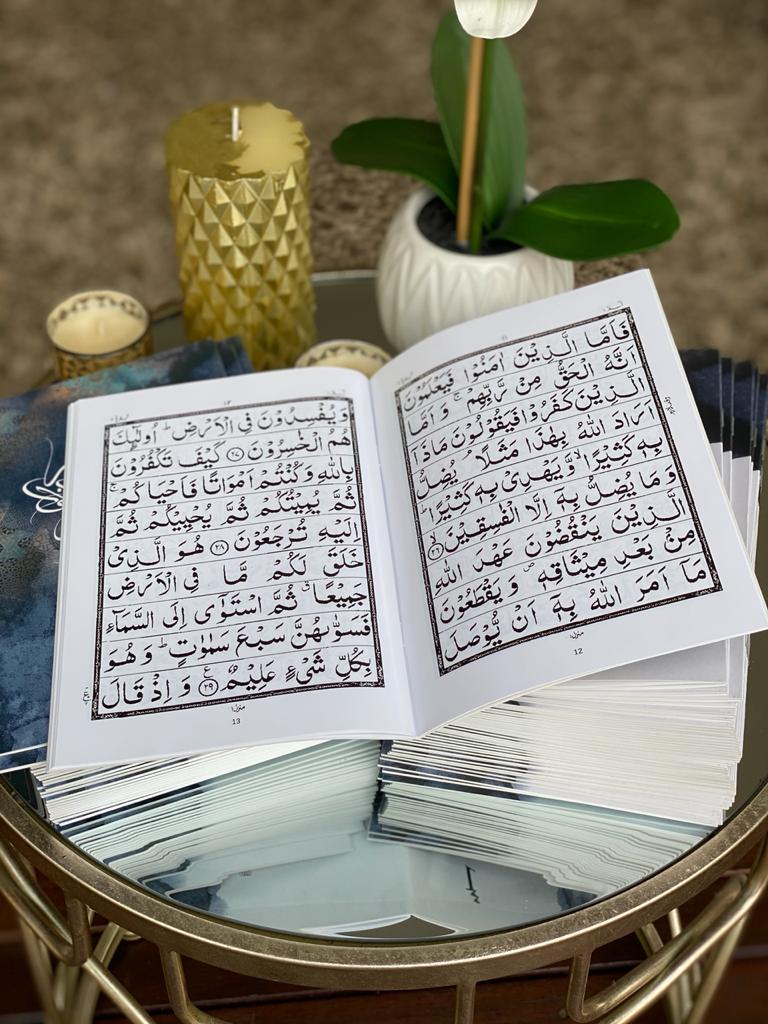 فَاَمَّا الَّذِيْنَ اٰمَنُوْا فَيَعْلَمُوْنَ
اَنَّهُ الْحَقُّ مِنْ رَّبِّهِمْ ۚ وَ اَمَّا
الَّذِيْنَ كَفَرُوْا فَيَقُوْلُوْنَ مَاذَاۤ
اَرَادَ اللّٰهُ بِهٰذَا مَثَلًا ۘ يُضِلُّ
بِهٖ كَثِيْرًا ۙ وَّ يَهْدِىْ بِهٖ كَثِيْرًا ؕ
وَ مَا يُضِلُّ بِهٖۤ اِلَّا الْفٰسِقِيْنَ ۙ‏﴿۲۶﴾
الَّذِيْنَ يَنْقُضُوْنَ عَهْدَ اللّٰهِ
مِنْۢ بَعْدِ مِيْثَاقِهٖ ۪ وَ يَقْطَعُوْنَ
مَاۤ اَمَرَ اللّٰهُ بِهٖۤ اَنْ يُّوْصَلَ
منزل۱
12
۱۳
وَ يُفْسِدُوْنَ فِى الْاَرْضِ ؕ اُولٰٓٮِٕكَ
هُمُ الْخٰسِرُوْنَ ﴿۲۷﴾ كَيْفَ تَكْفُرُوْنَ
بِاللّٰهِ وَ كُنْتُمْ اَمْوَاتًا فَاَحْيَاكُمْ ۚ
ثُمَّ يُمِيْتُكُمْ ثُمَّ يُحْيِيْكُمْ ثُمَّ
اِلَيْهِ تُرْجَعُوْنَ ﴿۲۸﴾ هُوَ الَّذِىْ
خَلَقَ لَكُمْ مَّا فِى الْاَرْضِ
جَمِيْعًا ۗ ثُمَّ اسْتَوٰۤى اِلَى السَّمَآءِ
فَسَوّٰٮهُنَّ سَبْعَ سَمٰوٰتٍ ؕ وَ هُوَ
بِكُلِّ شَىْءٍ عَلِيْمٌ ﴿۲۹﴾ ع وَ اِذْ قَالَ
منزل۱
13